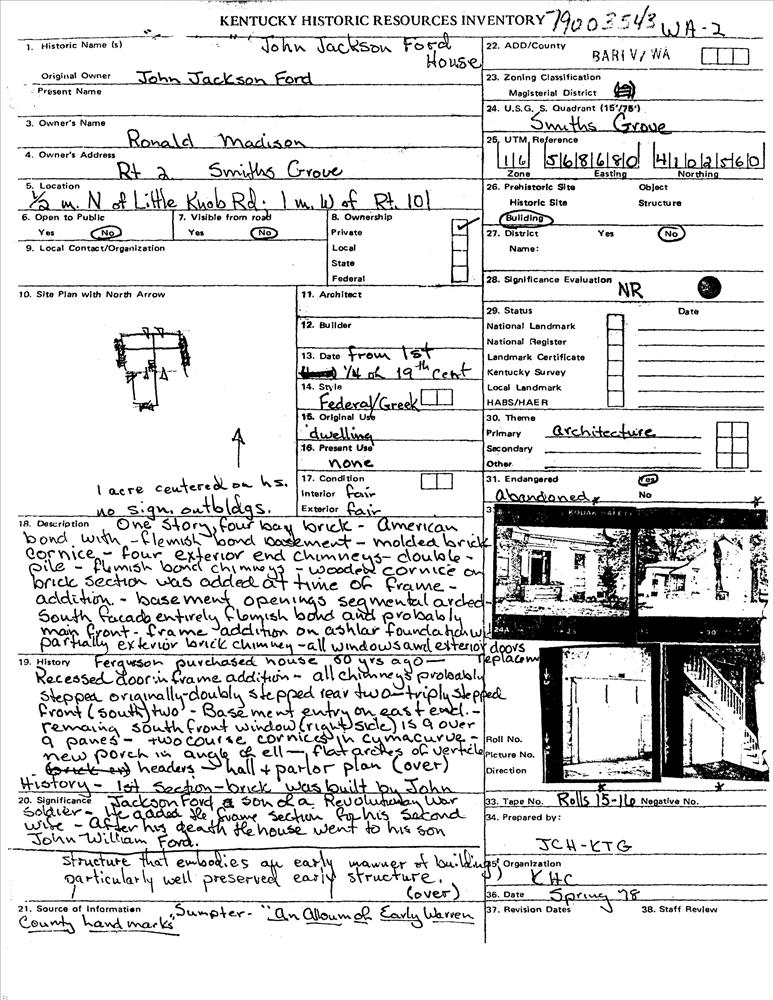 KENTUCKY HISTORIC RESOURCES INVENTORY 79003543 WA-2
1. Historic Name (s) John Jackson Ford House
Original Owner John Jackson Ford
Present Name
3. Owner's Name
Ronald Madison
4. Owner's Address
Rt 2 Smiths Grove
5. Location
1/2 m. N of Little Knob Rd; 1 m. W of Rt. 101
6. Open to Public
Yes No
7. Visible from road
Yes No
8. Ownership
Private ✓
Local
State
Federal
9. Local Contact/Organization
10. Site Plan with North Arrow
1 acre centered on hs.
no sign. outbldgs.
11. Architect
12. Builder
13. Date from 1st
1/4 of 19th Cent
14. Style
Federal/Greek
15. Original Use
dwelling
16. Present Use
none
17. Condition
Interior fair
Exterior fair
18. Description One story, four bay brick - American
bond with - flemish bond basement - molded brick
cornice - four exterior end chimneys - double-
pile - flemish bond chimneys - wooden cornice on
brick section was added at time of frame -
addition. - basement openings segmental arched -
South facade entirely flemish bond and probably
main front - frame addition on ashlar foundation w/
partially exterior brick chimney - all windows and exterior doors
replacem
19. History Ferguson purchased house 50 yrs ago -
Recessed door in frame addition - all chimneys probably
stepped originally - doubly stepped rear two - triply stepped
front (south) two - Basement entry on east end. -
remaining south front window (right side) is 9 over
9 panes - two course cornices in cyma curve -
new porch in angle of ell - flat arches of verticle
headers - hall + parlor plan (over)
History - 1st section - brick was built by John
20. Significance Jackson Ford a son of a Revolutionary War
Soldier - He added the frame section for his second
wife - After his death the house went to his son
John William Ford.
Structure that embodies an early manner of building;
particularly well preserved early structure.
(over)
21. Source of Information Sumpter - "An Album of Early Warren
County Landmarks"
22. ADD/County
BARIV/WA
23. Zoning Classification
Magisterial District
24. U.S.G. S. Quadrant (15'/75')
Smiths Grove
25. UTM Reference
16 568680 4102560
Zone Easting Northing
26. Prehistoric Site Object
Historic Site Structure
Building
27. District Yes No
Name:
28. Significance Evaluation NR
29. Status Date
National Landmark
National Register
Landmark Certificate
Kentucky Survey
Local Landmark
HABS/HAER
30. Theme
Primary architecture
Secondary
Other
31. Endangered Yes
abandoned No
KODAK SAFETY
Roll No.
Picture No.
Direction
33. Tape No. Rolls 15-16 Negative No.
34. Prepared by:
JCH-KTG
Organization
KHC
36. Date Spring '78
37. Revision Dates
38. Staff Review